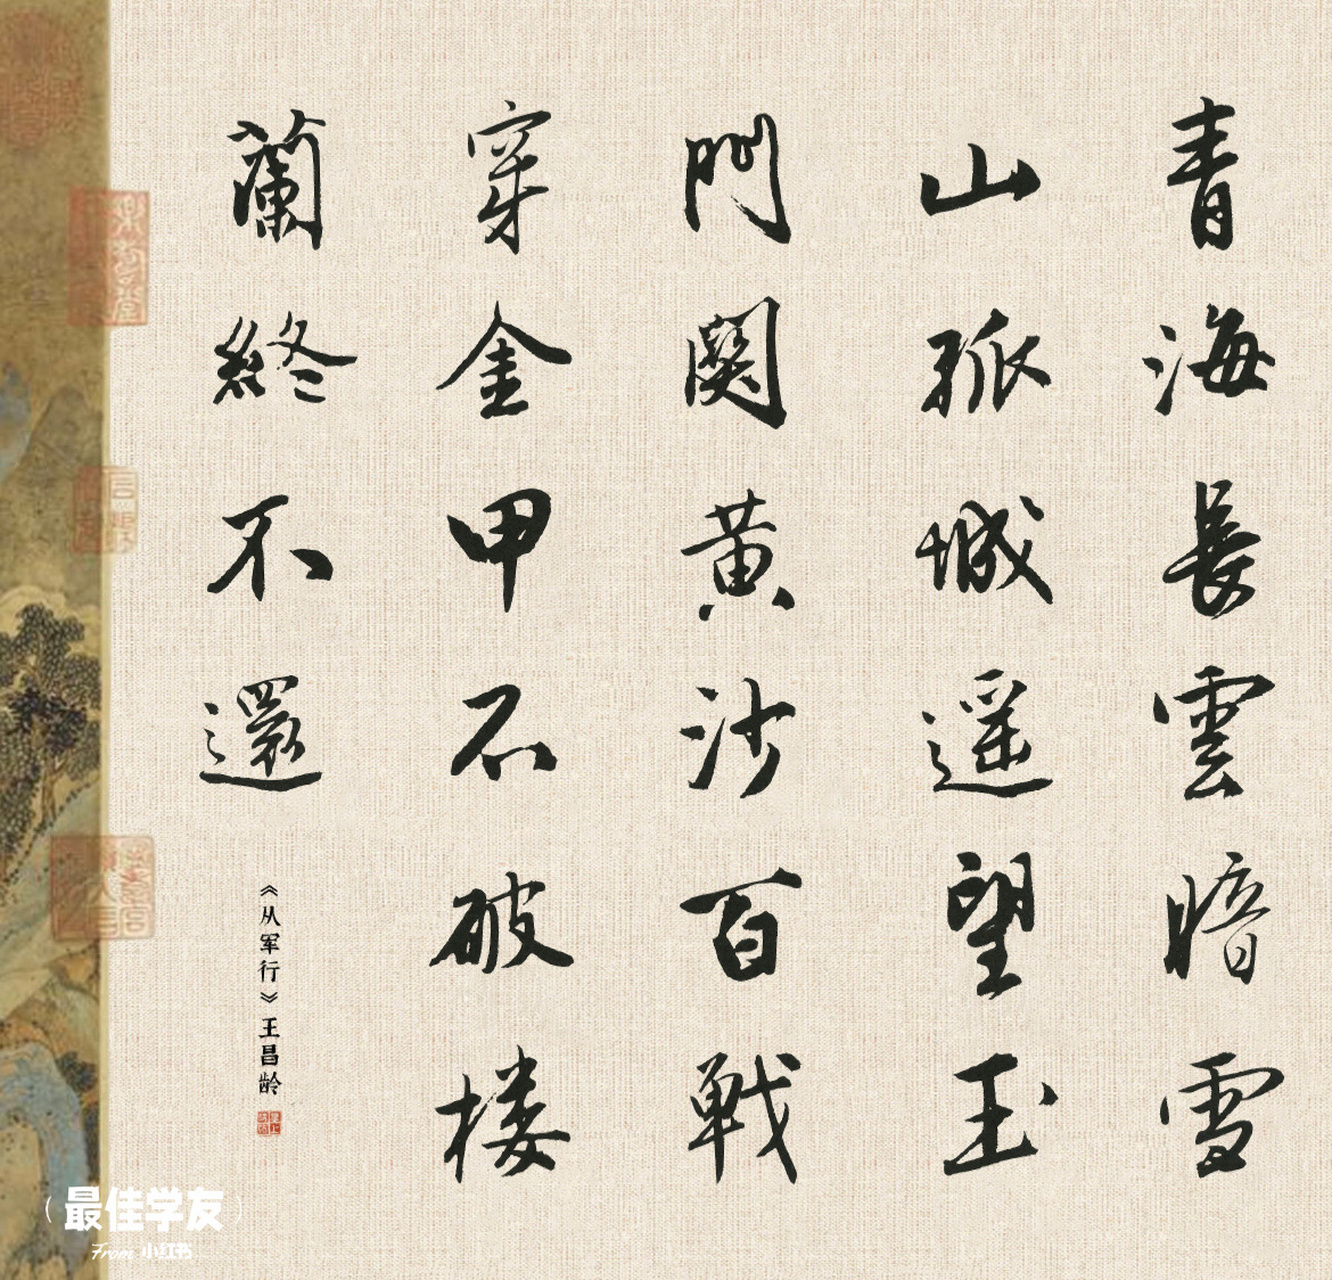 青海長雲暗雪
山孤城遥望玉
門関黄沙百戦
穿金甲不破楼
蘭終不還
《从军行》王昌龄
最佳学友
From 小红书